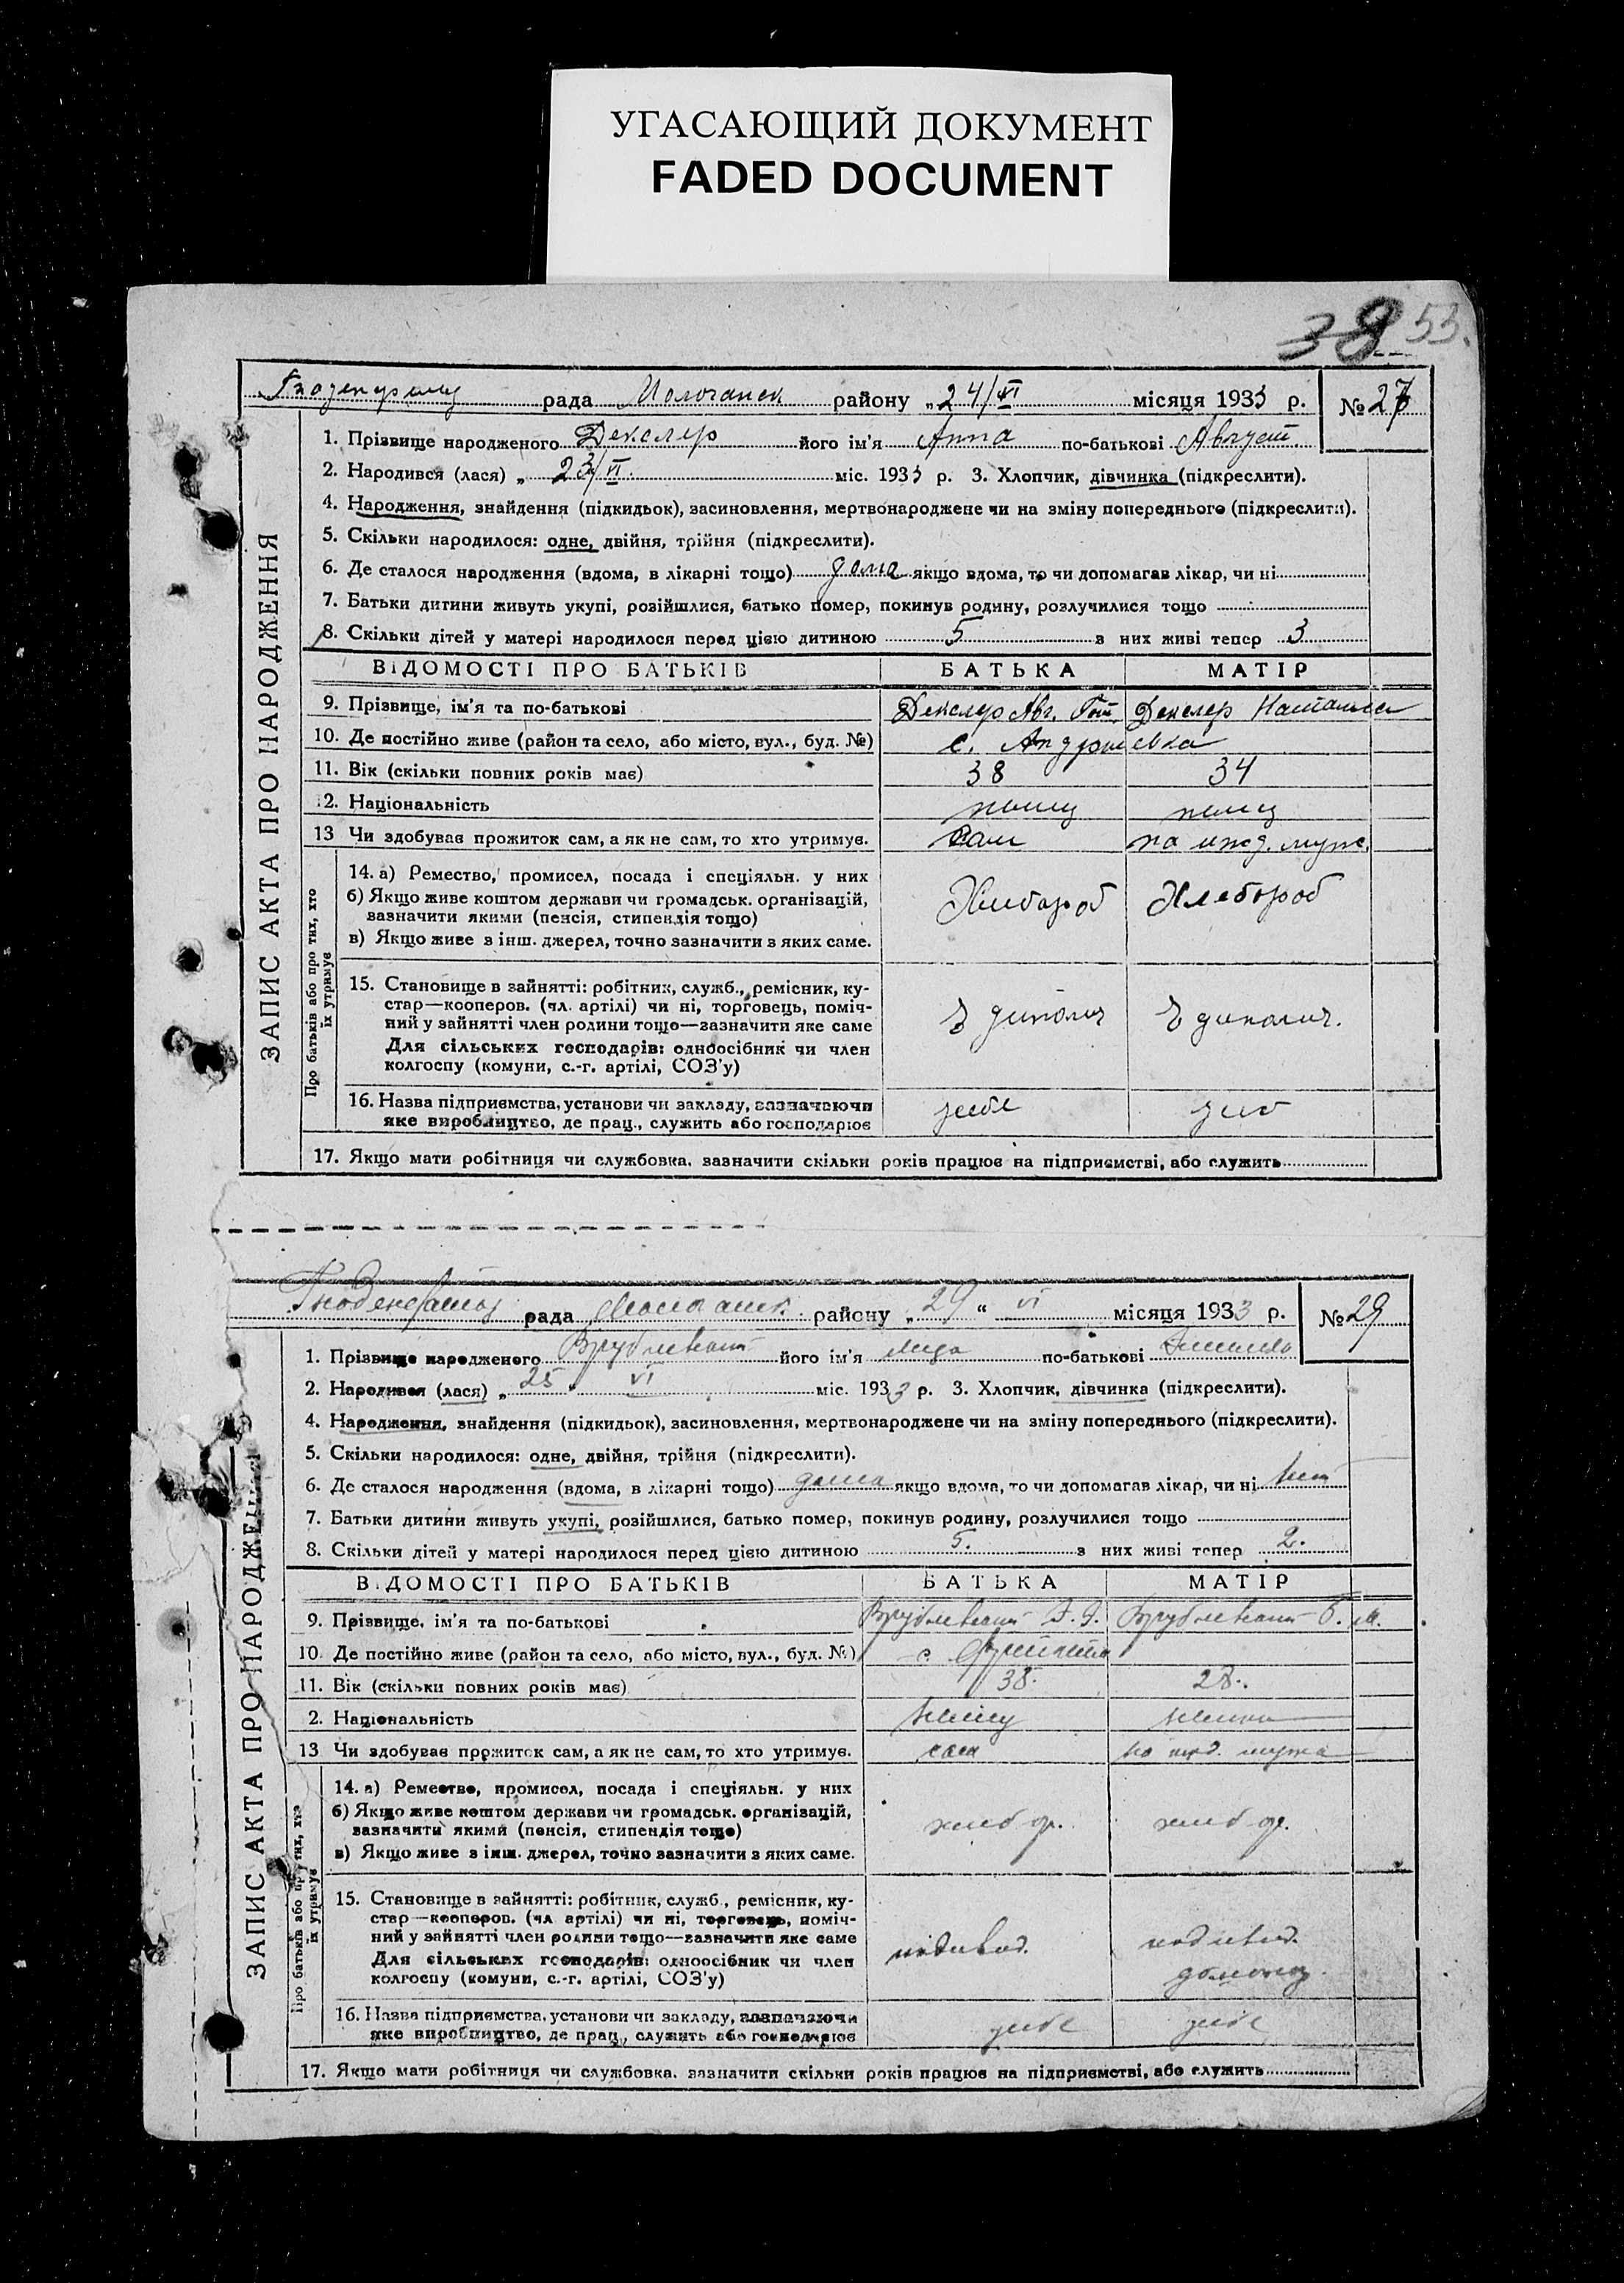 УГАСАЮЩИЙ ДОКУМЕНТ
FADED DOCUMENT
38 53.
рада Молочанск району „24/VI місяця 1933 р. № 27
ЗАПИС АКТА ПРО НАРОДЖЕННЯ
1. Прізвище народженого Декслер його ім'я Анна по-батькові Август.
2. Народився (лася) „ 23/VI. міс. 1933 р. 3. Хлопчик, дівчинка (підкреслити).
4. Народження, знайдення (підкидьок), засиновлення, мертвонароджене чи на зміну попереднього (підкреслити).
5. Скільки народилося: одне, двійня, трійня (підкреслити).
6. Де сталося народження (вдома, в лікарні тощо) дома якщо вдома, то чи допомагав лікар, чи ні
7. Батьки дитини живуть укупі, розійшлися, батько помер, покинув родину, розлучилися тощо
8. Скільки дітей у матері народилося перед цією дитиною 5 з них живі тепер 3
ВІДОМОСТІ ПРО БАТЬКІВ БАТЬКА МАТІР
9. Прізвище, ім'я та по-батькові Декслер Авг. Гот. Декслер Наталья
10. Де постійно живе (район та село, або місто, вул., буд. №) с. Андріевка
11. Вік (скільки повних років має) 38 34
12. Національність немц немц
13 Чи здобував прожиток сам, а як не сам, то хто утримує. Сам на ижд. муже.
Про батьків або про тих, хто їх утримує
14. а) Ремество, промисел, посада і спеціяльн. у них
б) Якщо живе коштом держави чи громадськ. організацій,
зазначити якими (пенсія, стипендія тощо)
в) Якщо живе з інш. джерел, точно зазначити з яких саме.
Хлебороб Хлебороб
15. Становище в зайнятті: робітник, служб., ремісник, ку-
стар—кооперов. (чл. артілі) чи ні, торговець, поміч-
ний у зайнятті член родини тощо—зазначити яке саме
Для сільських господарів: одноосібник чи член
колгоспу (комуни, с.-г. артілі, СОЗ'у)
16. Назва підприємства, установи чи закладу, зазначаючи
яке виробництво, де прац., служить або господарює
17. Якщо мати робітниця чи службовка, зазначити скільки років працює на підприємстві, або служить
рада Молочанск. району „ 29 “ VI місяця 1933 р. № 29
ЗАПИС АКТА ПРО НАРОДЖЕННЯ
1. Прізвище народженого його ім'я Лида по-батькові
2. Народився (лася) „ 25 “ VI міс. 1933 р. 3. Хлопчик, дівчинка (підкреслити).
4. Народження, знайдення (підкидьок), засиновлення, мертвонароджене чи на зміну попереднього (підкреслити).
5. Скільки народилося: одне, двійня, трійня (підкреслити).
6. Де сталося народження (вдома, в лікарні тощо) дома якщо вдома, то чи допомагав лікар, чи ні нет
7. Батьки дитини живуть укупі, розійшлися, батько помер, покинув родину, розлучилися тощо
8. Скільки дітей у матері народилося перед цією дитиною 5. з них живі тепер 2.
ВІДОМОСТІ ПРО БАТЬКІВ БАТЬКА МАТІР
9. Прізвище, ім'я та по-батькові
10. Де постійно живе (район та село, або місто, вул., буд. №) с.
11. Вік (скільки повних років має) 38. 28.
2. Національність немц немка
13 Чи здобував прожиток сам, а як не сам, то хто утримує. сам на ижд. мужа
Про батьків або про тих, хто їх утримує
14. а) Ремество, промисел, посада і спеціяльн. у них
б) Якщо живе коштом держави чи громадськ. організацій,
зазначити якими (пенсія, стипендія тощо)
в) Якщо живе з інш. джерел, точно зазначити з яких саме.
15. Становище в зайнятті: робітник, служб., ремісник, ку-
стар—кооперов. (чл. артілі) чи ні, торговець, поміч-
ний у зайнятті член родини тощо—зазначити яке саме
Для сільських господарів: одноосібник чи член
колгоспу (комуни, с.-г. артілі, СОЗ'у)
индивид. индивид.
16. Назва підприємства, установи чи закладу, зазначаючи
яке виробництво, де прац., служить або господарює
17. Якщо мати робітниця чи службовка, зазначити скільки років працює на підприємстві, або служить